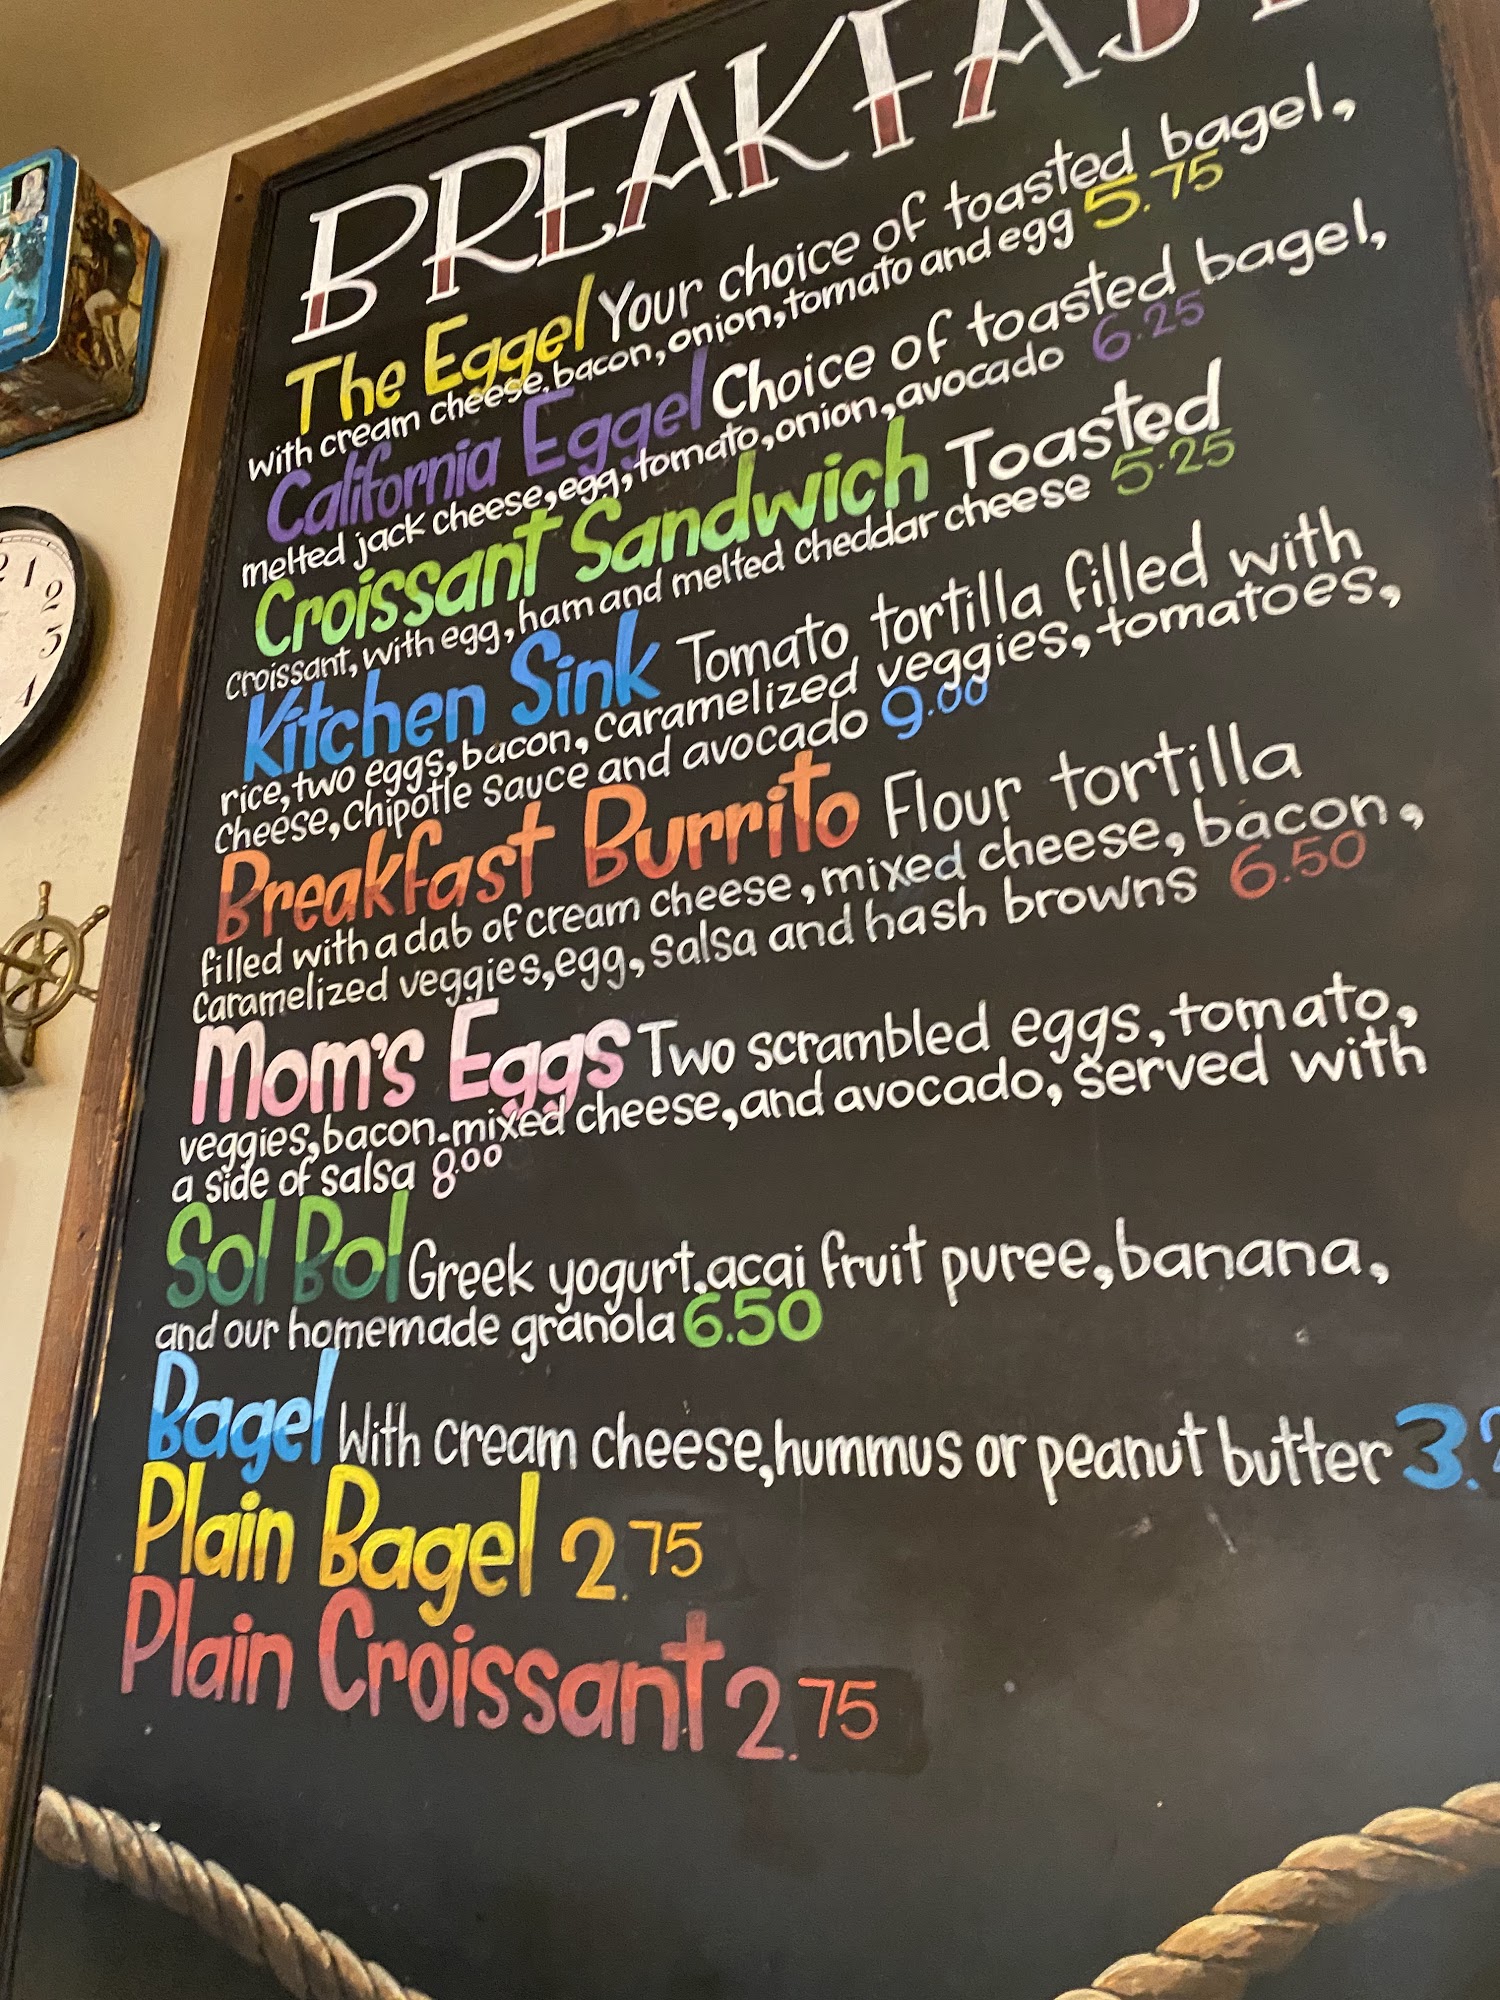 BREAKFAST
The Eggel Your choice of toasted bagel,
with cream cheese, bacon, onion, tomato and egg 5.75
California Eggel Choice of toasted bagel,
melted jack cheese, egg, tomato, onion, avocado 6.25
Croissant Sandwich Toasted
croissant, with egg, ham and melted cheddar cheese 5.25
Kitchen Sink Tomato tortilla filled with
rice, two eggs, bacon, caramelized veggies, tomatoes,
cheese, chipotle sauce and avocado 9.00
Breakfast Burrito Flour tortilla
filled with a dab of cream cheese, mixed cheese, bacon,
caramelized veggies, egg, salsa and hash browns 6.50
Mom's Eggs Two scrambled eggs, tomato,
veggies, bacon. mixed cheese, and avocado, served with
a side of salsa 8.00
Sol Bol Greek yogurt, acai fruit puree, banana,
and our homemade granola 6.50
Bagel With cream cheese, hummus or peanut butter 3.
Plain Bagel 2.75
Plain Croissant 2.75
1
2
3
4